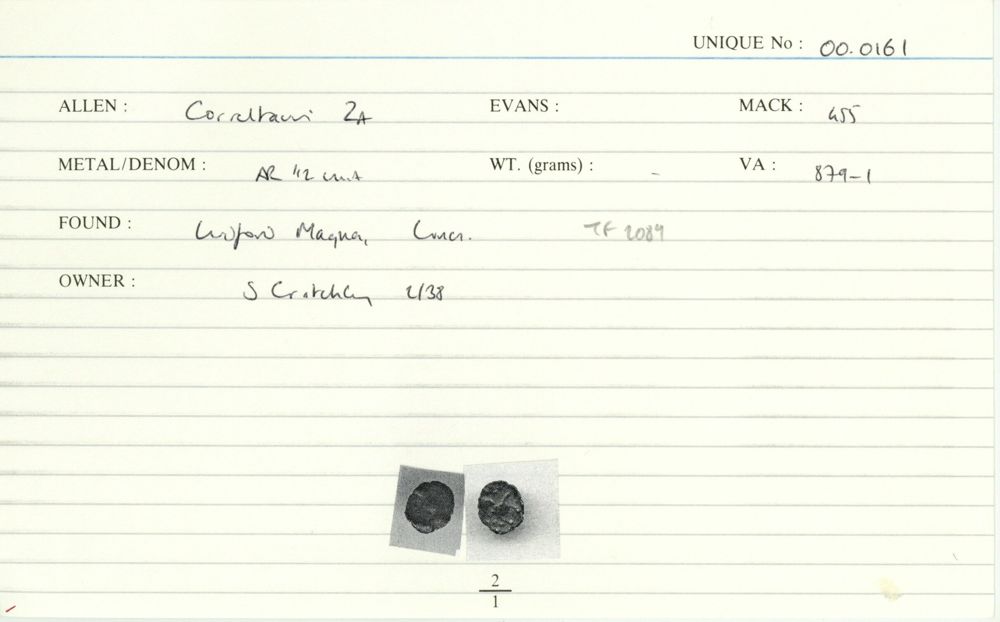 UNIQUE No : 00.0161
ALLEN : Corieltauvi 2A EVANS : MACK : 455
METAL/DENOM : AR 1/2 unit WT. (grams) : - VA : 879-1
FOUND : Magna, Lincs. TF 2089
OWNER : S Critchley 2/38
2
1